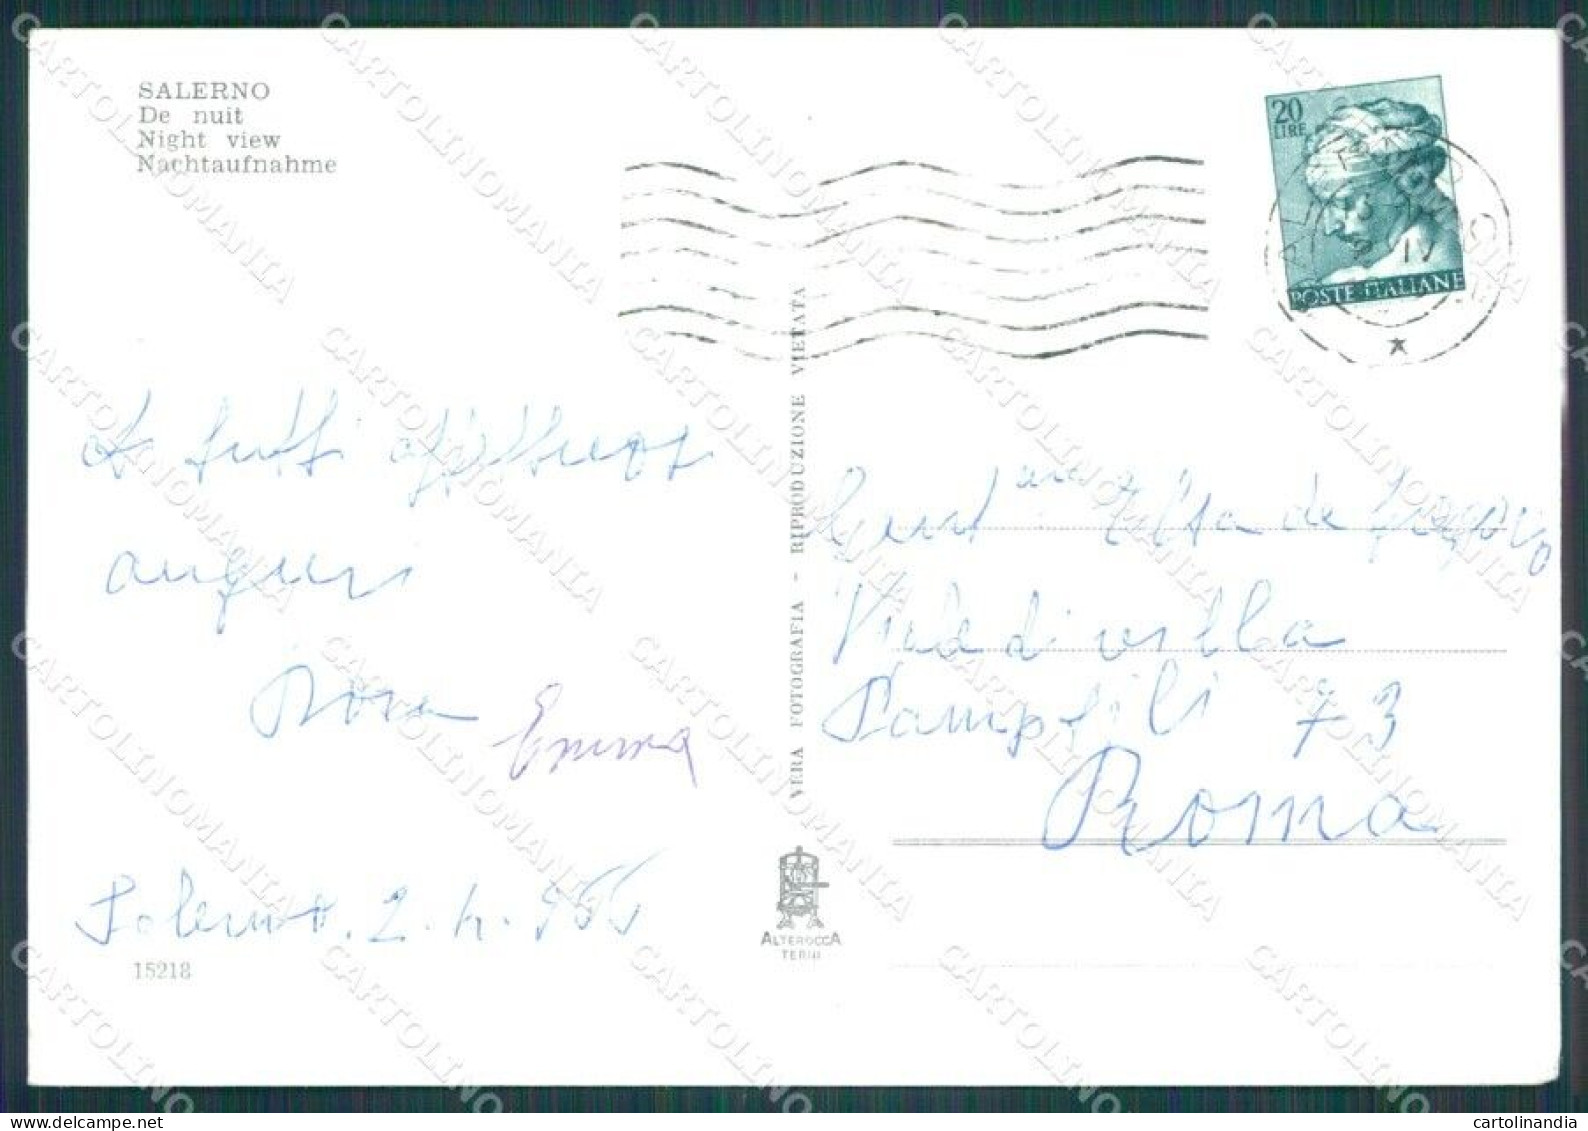 SALERNO
De nuit
Night view
Nachtaufnahme
20
LIRE
POSTE ITALIANE
A tutti affettuosi
auguri
Nora
Emma
Salerno. 2. 4.
15218
VERA FOTOGRAFIA - RIPRODUZIONE VIETATA
ALTEROCCA
TERNI
Elsa de Gregorio
Viale di villa
Pamphili 73
Roma
CARTOLINOMANIA
cartolinandia